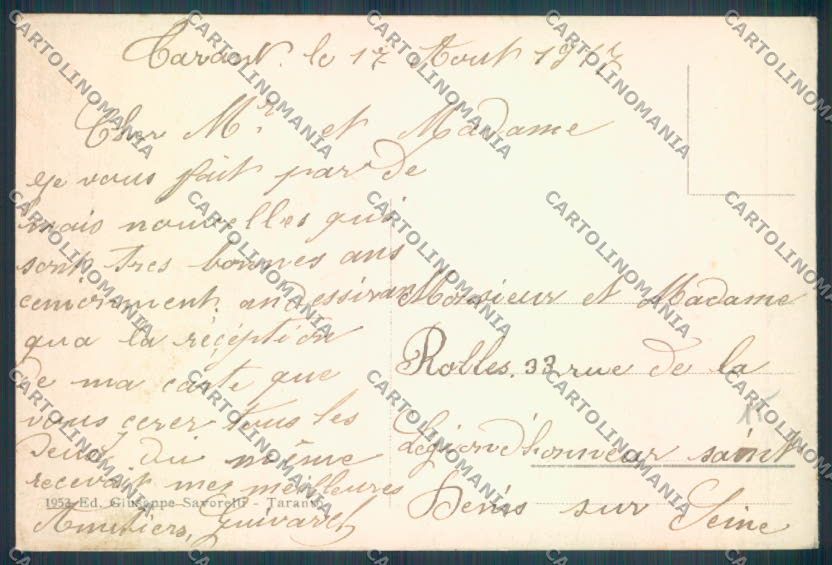 Tarant. le 17 Aout 1917
Cher Mr. et Madame
Je vous fait par de
mais nouvelles qui
sont tres bonnes ans
qua la réception
de ma carte que
vous cerer tous les
deux du même
recevait mes meilleures
Amitiers, Guivarch
Monsieur et Madame
Rolles. 33 rue de la
Légion d'honneur saint
Denis sur Seine
1953 Ed. Giuseppe Savorelli - Taranto
CARTOLINOMANIA